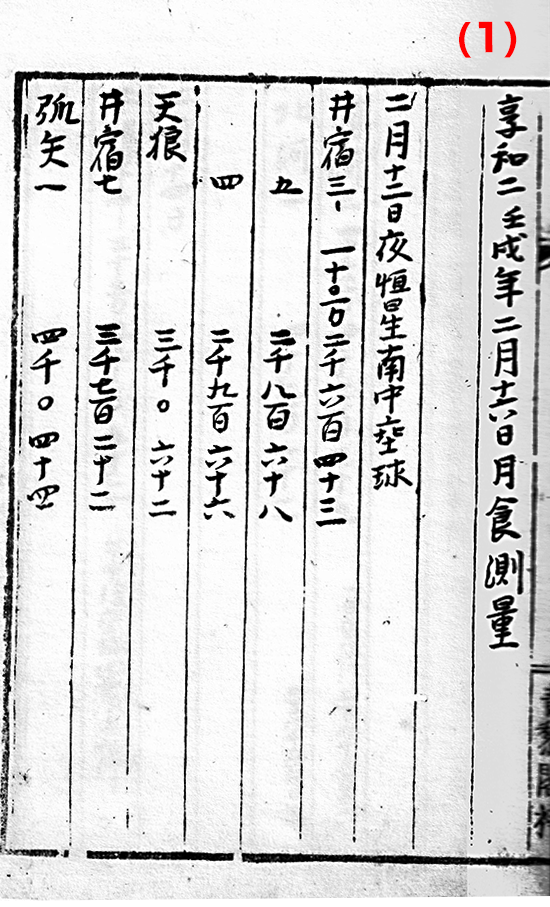 (1)
享和二壬戌年二月十六日月食測量
二月十二日夜恒星南中垂球
井宿三 一十〇 〇二千六百四十三
五 二千八百六十八
四 二千九百六十六
天狼 三千〇六十二
井宿七 三千七百二十二
弧矢一 四千〇四十四